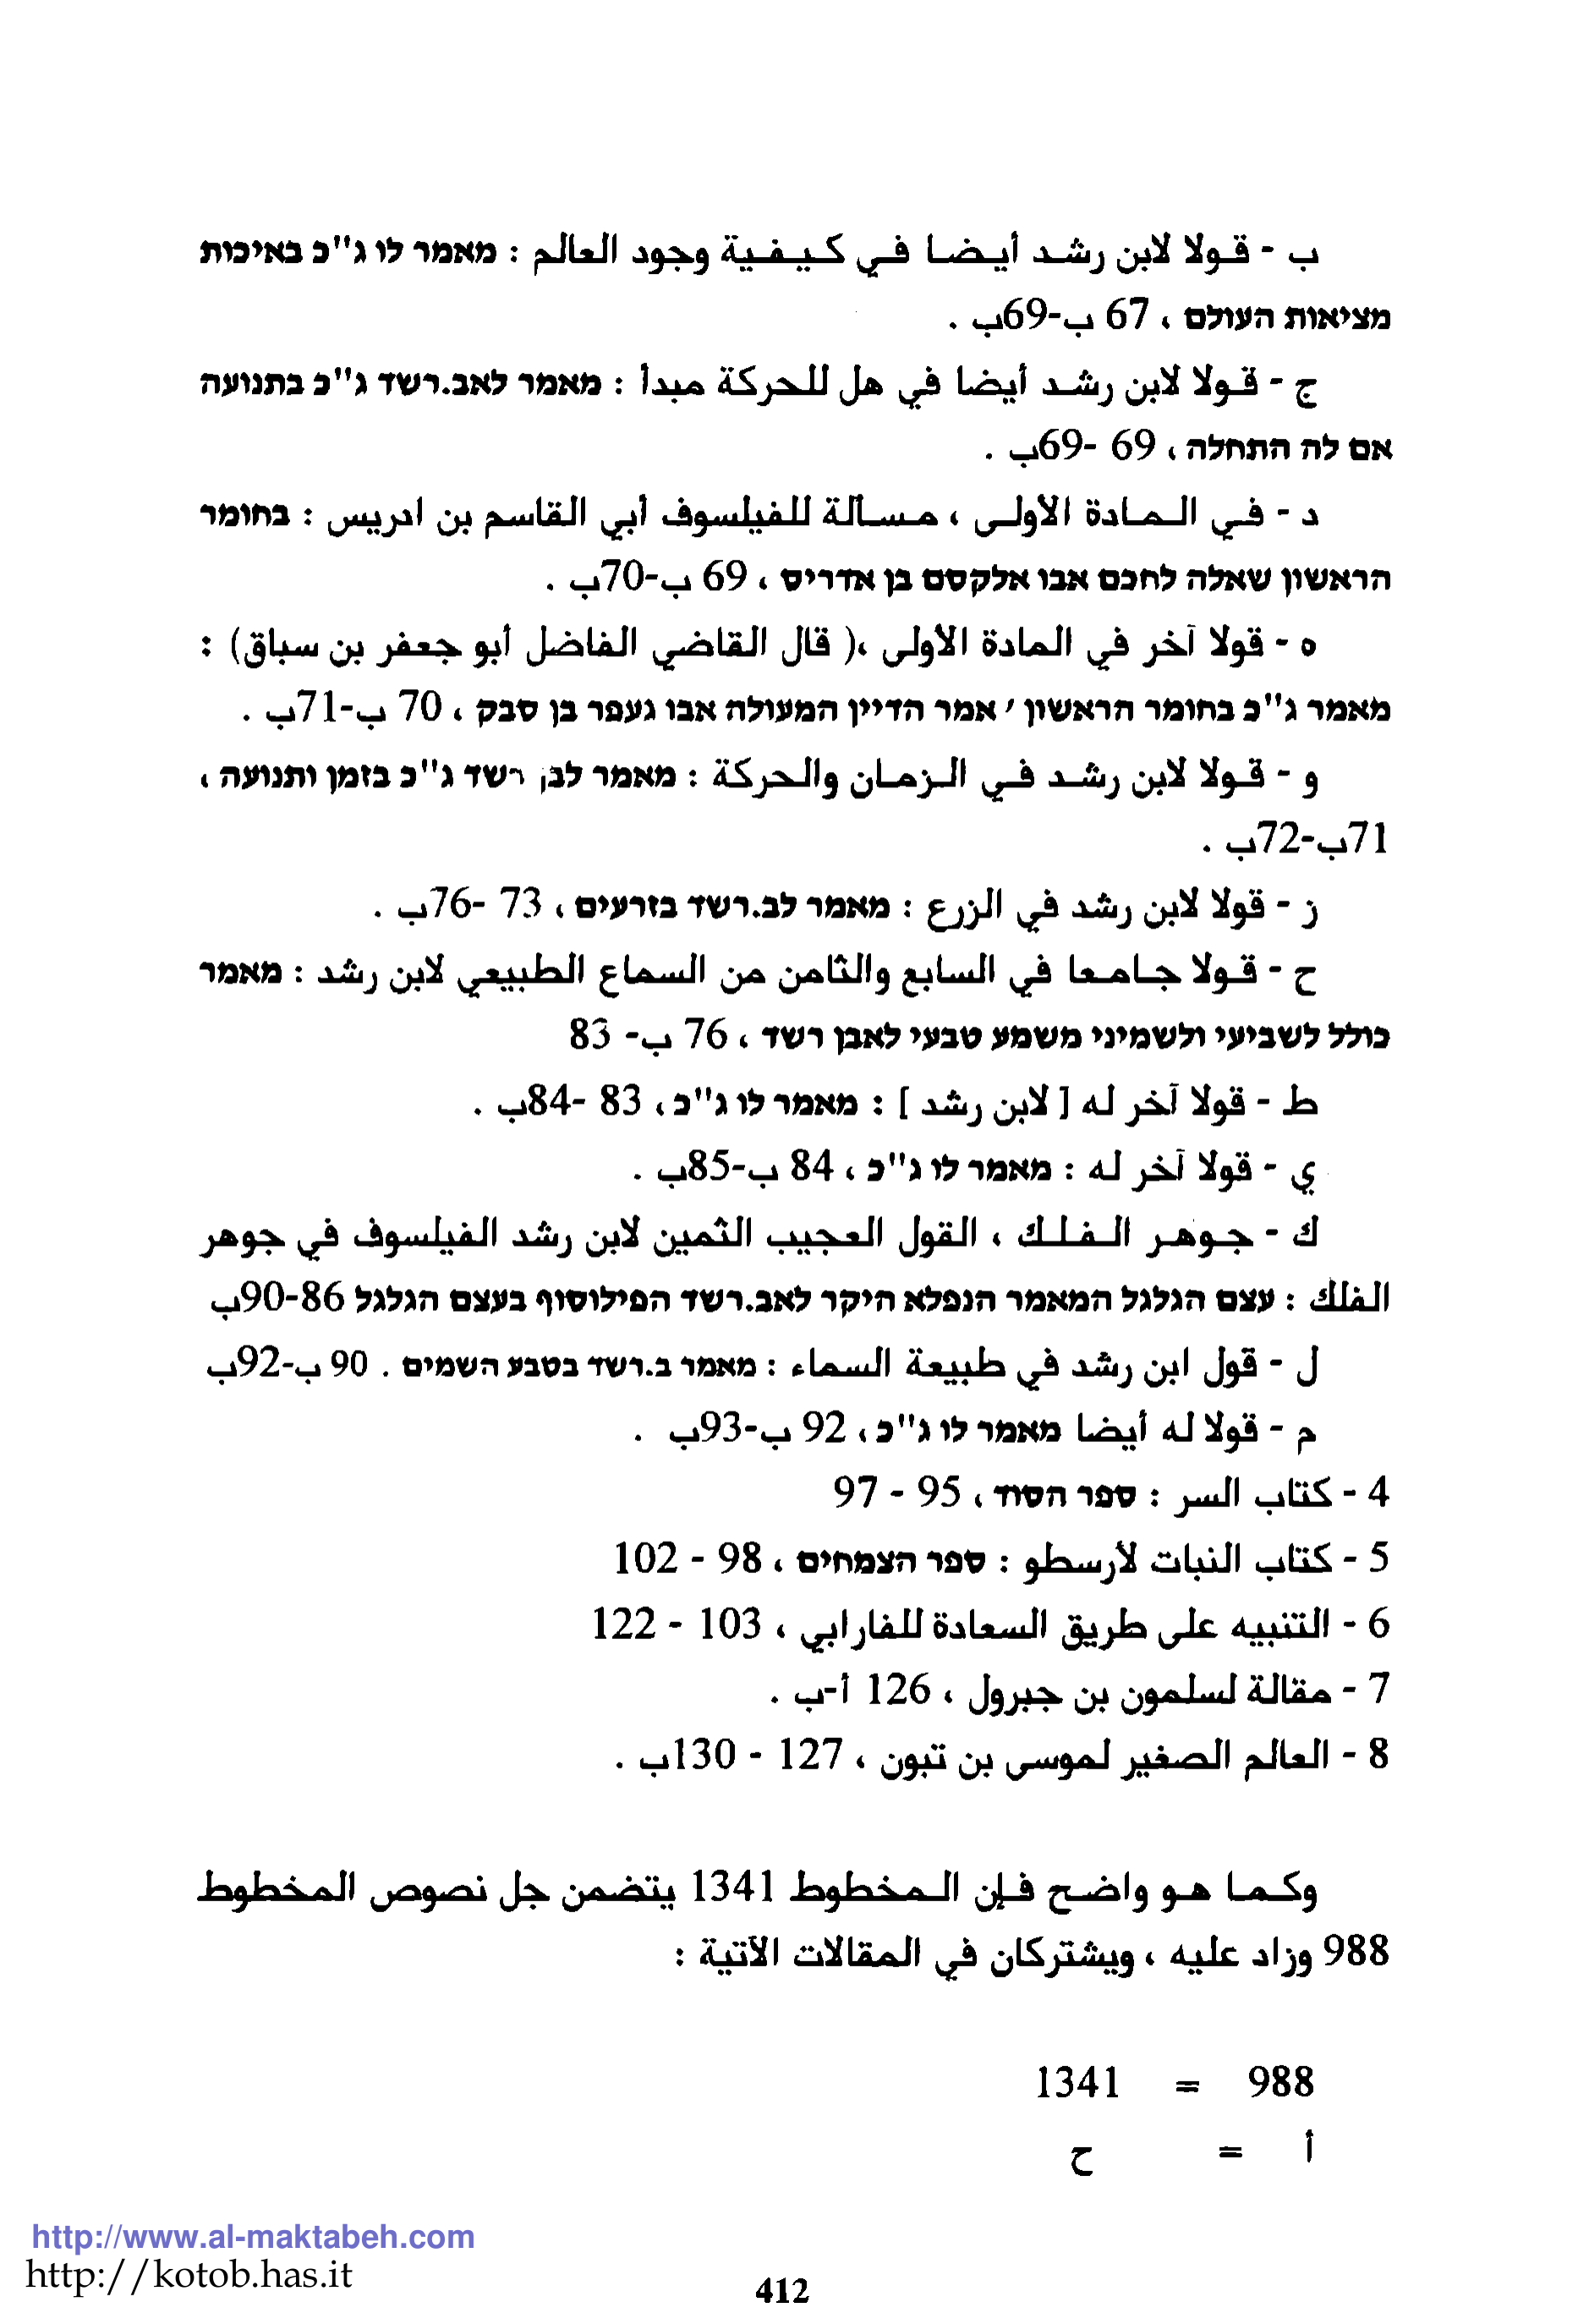 ب - قولا لابن رشد أيضا في كيفية وجود العالم : מאמר לו ג"כ באיכות
מציאות העולם ، 67 ب-69ب .
ج - قولا لابن رشد أيضا في هل للحركة مبدأ : מאמר לאב.רשד ג"כ בתנועה
אם לה התחלה ، 69 -69ب .
د - في المادة الاولى ، مسألة للفيلسوف أبي القاسم بن ادريس : בחומר
הראשון שאלה לחכם אבו אלקסם בן אדריס ، 69 ب-70ب .
ه - قولا آخر في المادة الأولى ،( قال القاضي الفاضل أبو جعفر بن سباق) :
מאמר ג"כ בחומר הראשון / אמר הדיין המעולה אבו געפר בן סבק ، 70 ب-71ب .
و - قولا لابن رشد في الزمان والحركة : מאמר לבן רשד ג"כ בזמן ותנועה ،
71ب-72ب .
ز - قولا لابن رشد في الزرع : מאמר לב.רשד בזרעים ، 73 -76ب .
ح - قولا جامعا في السابع والثامن من السماع الطبيعي لابن رشد : מאמר
כולל לשביעי ולשמיני משמע טבעי לאבן רשד ، 76 ب- 83
ط - قولا آخر له [ لابن رشد ] : מאמר לו ג"כ ، 83 -84ب .
ي - قولا آخر له : מאמר לו ג"כ ، 84 ب-85ب .
ك - جوهر الفلك ، القول العجيب الثمين لابن رشد الفيلسوف في جوهر
الفلك : עצם הגלגל המאמר הנפלא היקר לאב.רשד הפילוסוף בעצם הגלגל 86-90ب
ل - قول ابن رشد في طبيعة السماء : מאמר ב.רשד בטבע השמים . 90 ب-92ب
م - قولا له أيضا מאמר לו ג"כ ، 92 ب-93ب .
4 - كتاب السر : ספר הסוד ، 95 - 97
5 - كتاب النبات لأرسطو : ספר הצמחים ، 98 - 102
6 - التنبيه على طريق السعادة للفارابي ، 103 - 122
7 - مقالة لسلمون بن جبرول ، 126 أ-ب .
8 - العالم الصغير لموسى بن تبون ، 127 - 130ب .
وكما هو واضح فإن المخطوط 1341 يتضمن جل نصوص المخطوط
988 وزاد عليه ، ويشتركان في المقالات الآتية :
988 = 1341
أ = ح
http://www.al-maktabeh.com
http://kotob.has.it
412